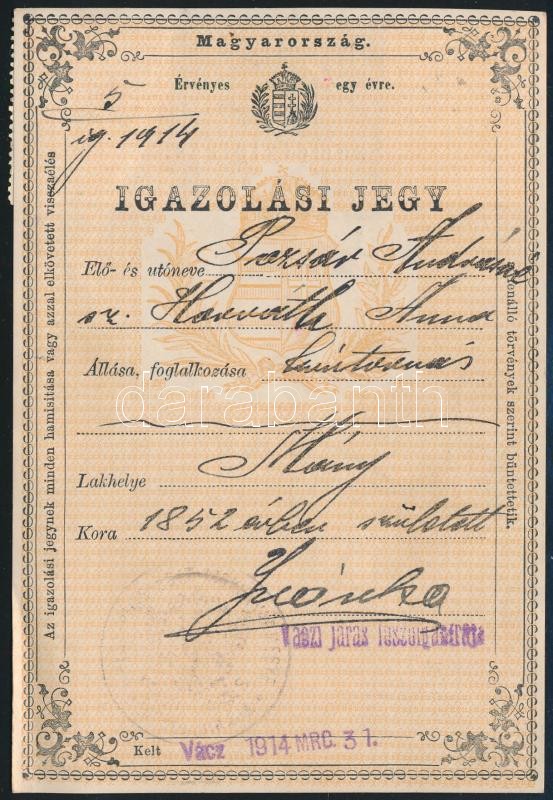 Magyarország.
Érvényes egy évre.
5
ig. 1914
IGAZOLÁSI JEGY
Elő- és utóneve Pozsár Andrásné
sz. Horváth Anna
Állása, foglalkozása kintornás
darabanth
Lakhelye Mány
Kora 1852 évben született
Ivánka
Váczi járás főszolgabírája
Kelt Vácz 1914 MRC. 31.
Az igazolási jegynek minden hamisitása vagy azzal elkövetett visszaélés
fennálló törvények szerint büntettetik.